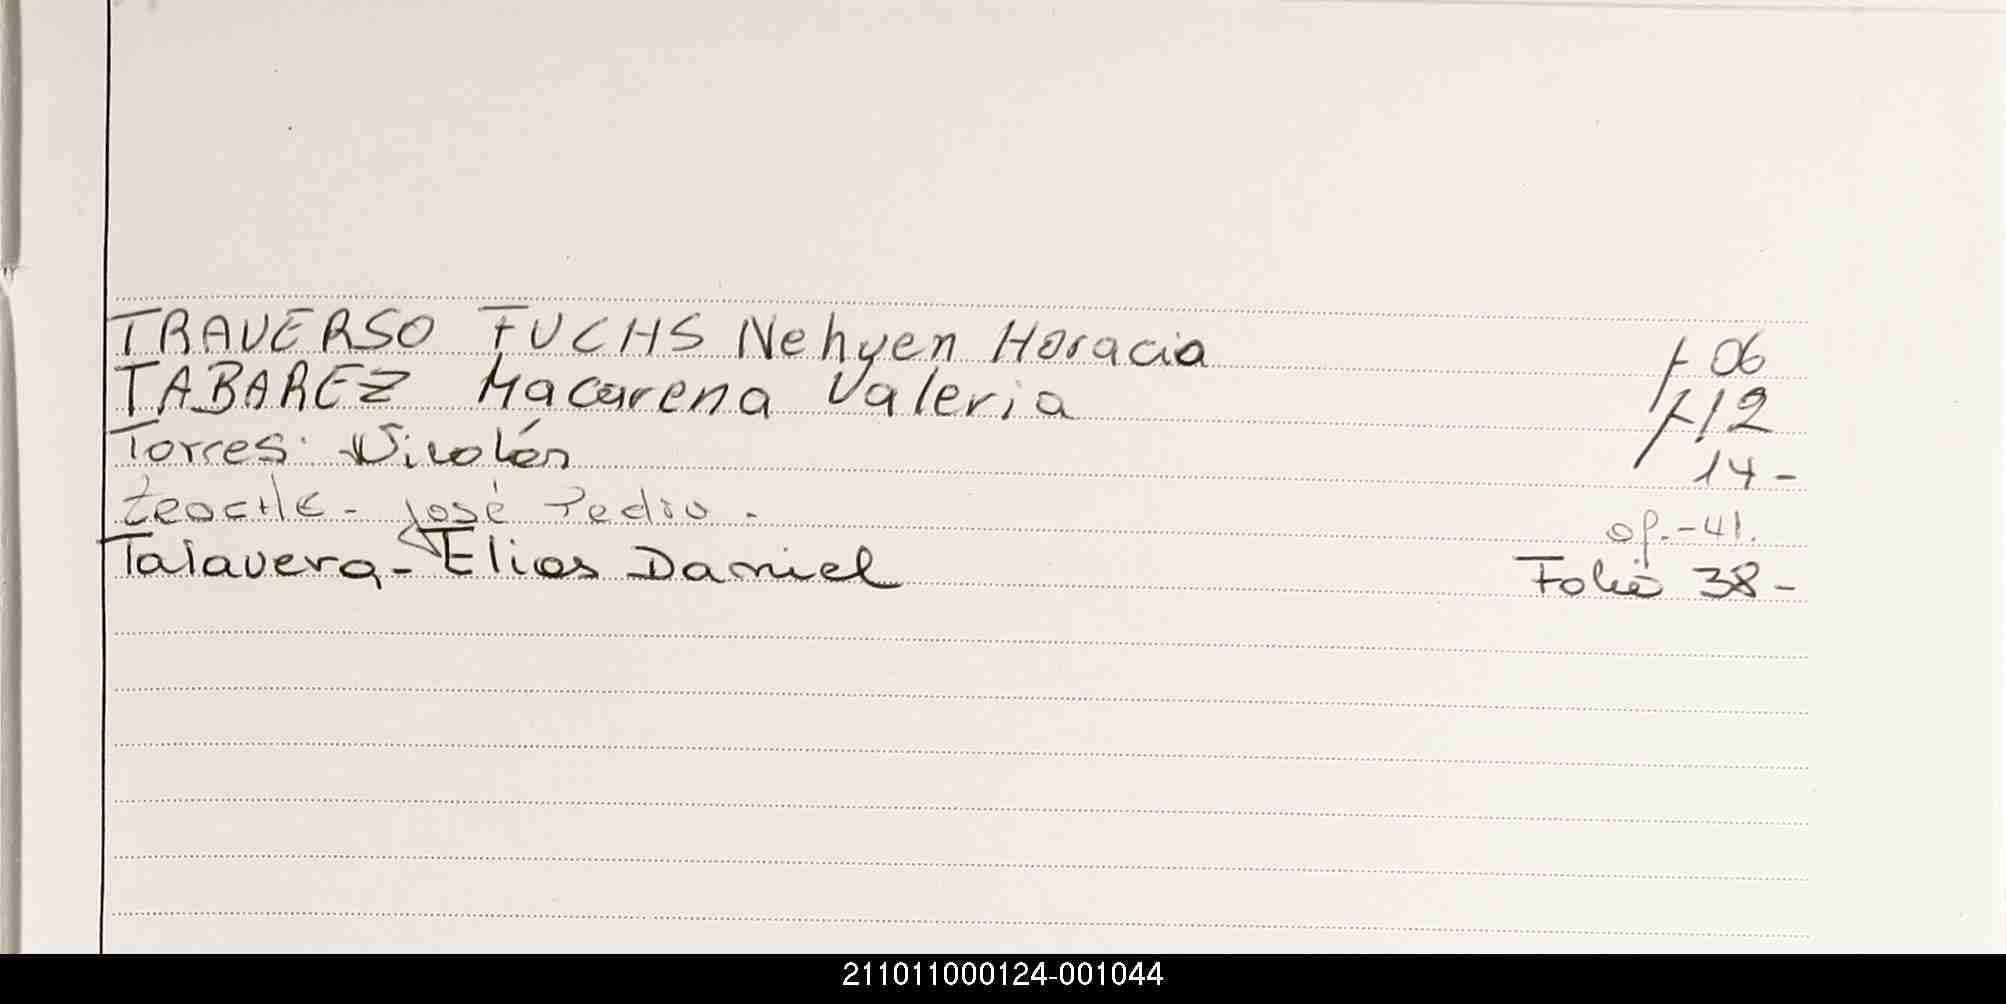 TRAVERSO FUCHS Nehyen Horacia f 06
TABAREZ Macarena Valeria f 12
Torres. Nicolás 14-
José Pedro. of.-41.
Talavera- Elias Daniel Folio 38-
211011000124-001044